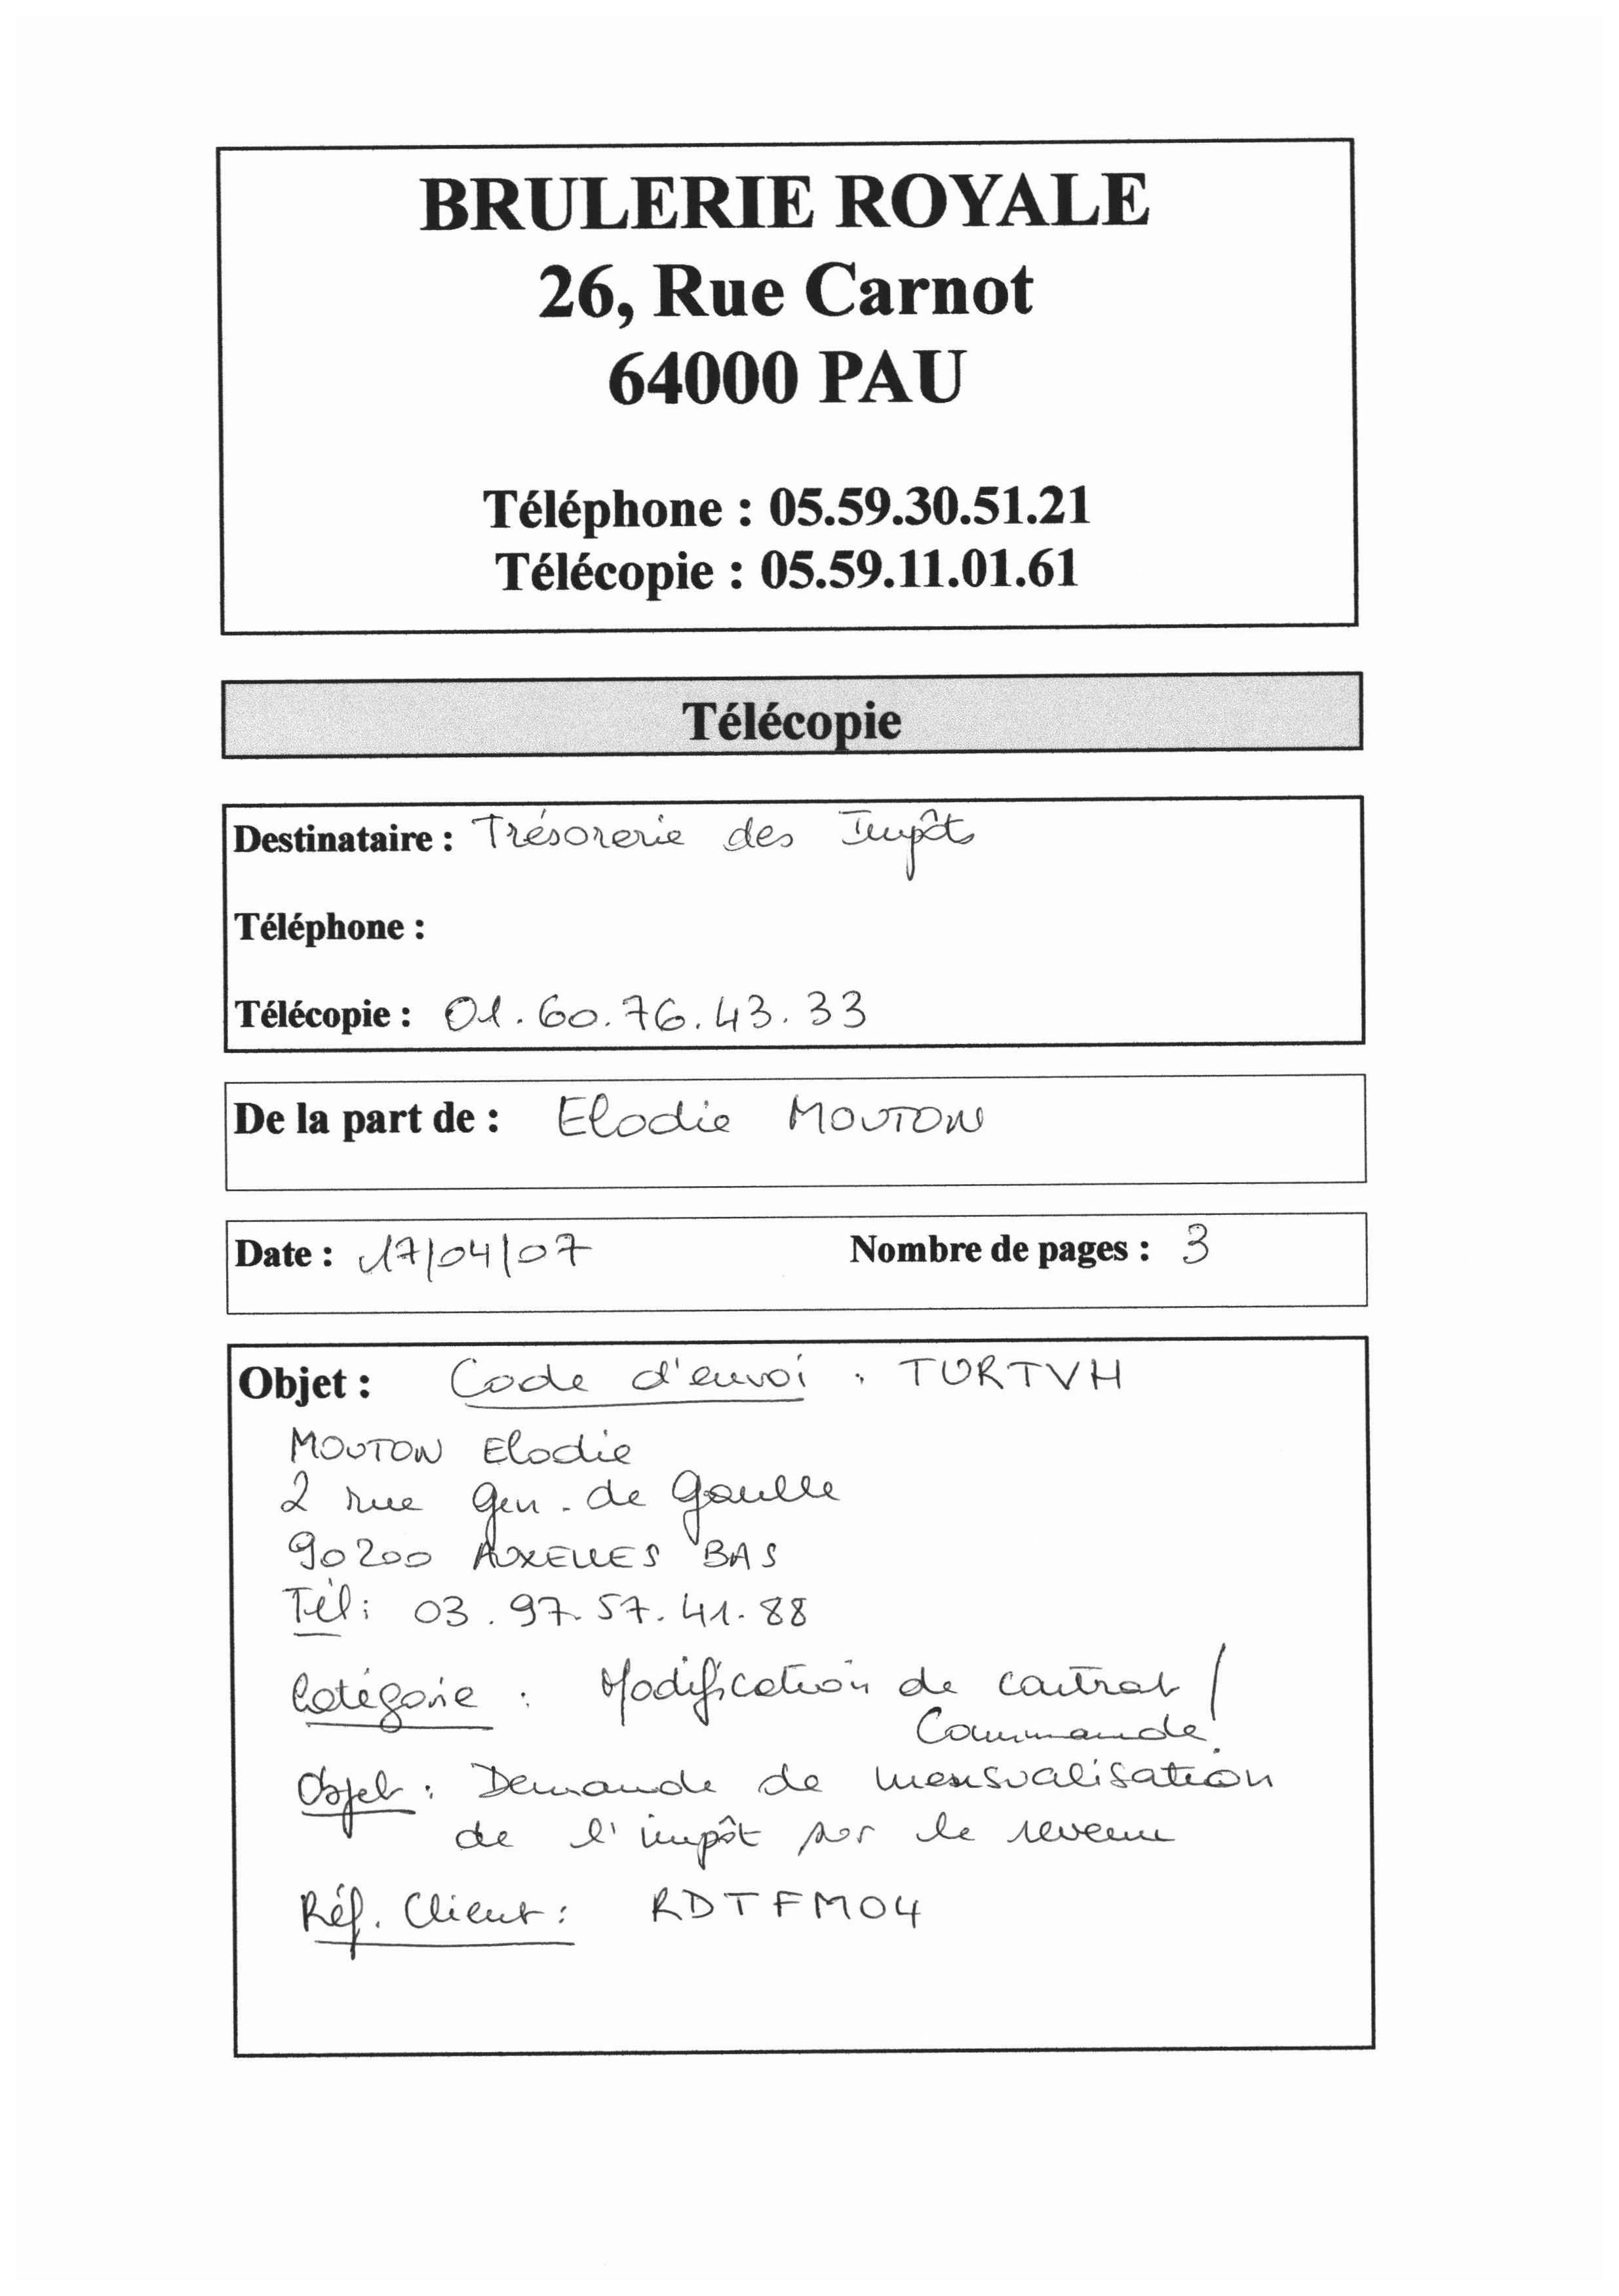 BRULERIE ROYALE
26, Rue Carnot
64000 PAU
Téléphone : 05.59.30.51.21
Télécopie : 05.59.11.01.61
Télécopie
Destinataire : Trésorerie des Impôts
Téléphone :
Télécopie : 01.60.76.43.33
De la part de : Elodie MOUTON
Date : 17/04/07 Nombre de pages : 3
Objet : Code d'envoi : TURTVH
MOUTON Elodie
2 rue gen. de Gaulle
90200 AUXELLES BAS
Tél : 03.97.57.41.88
Catégorie : Modification de contrat /
Commande
Objet : Demande de mensualisation
de l'impôt sur le revenu
Réf. Client : RDTFM04